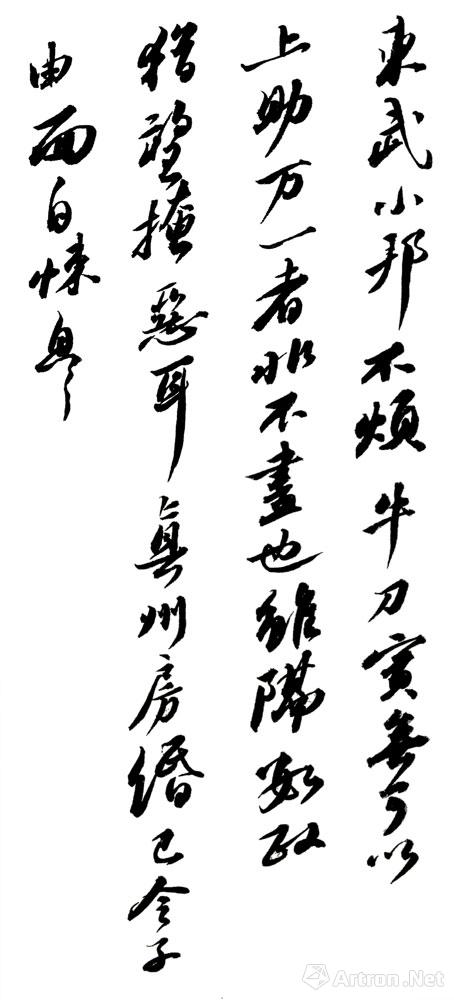 東武小邦不煩牛刀實無可以
上助万一者非不盡也雖隔數政
猶望掩惡耳真州房緡已令子
由面白悚息
Artron.Net